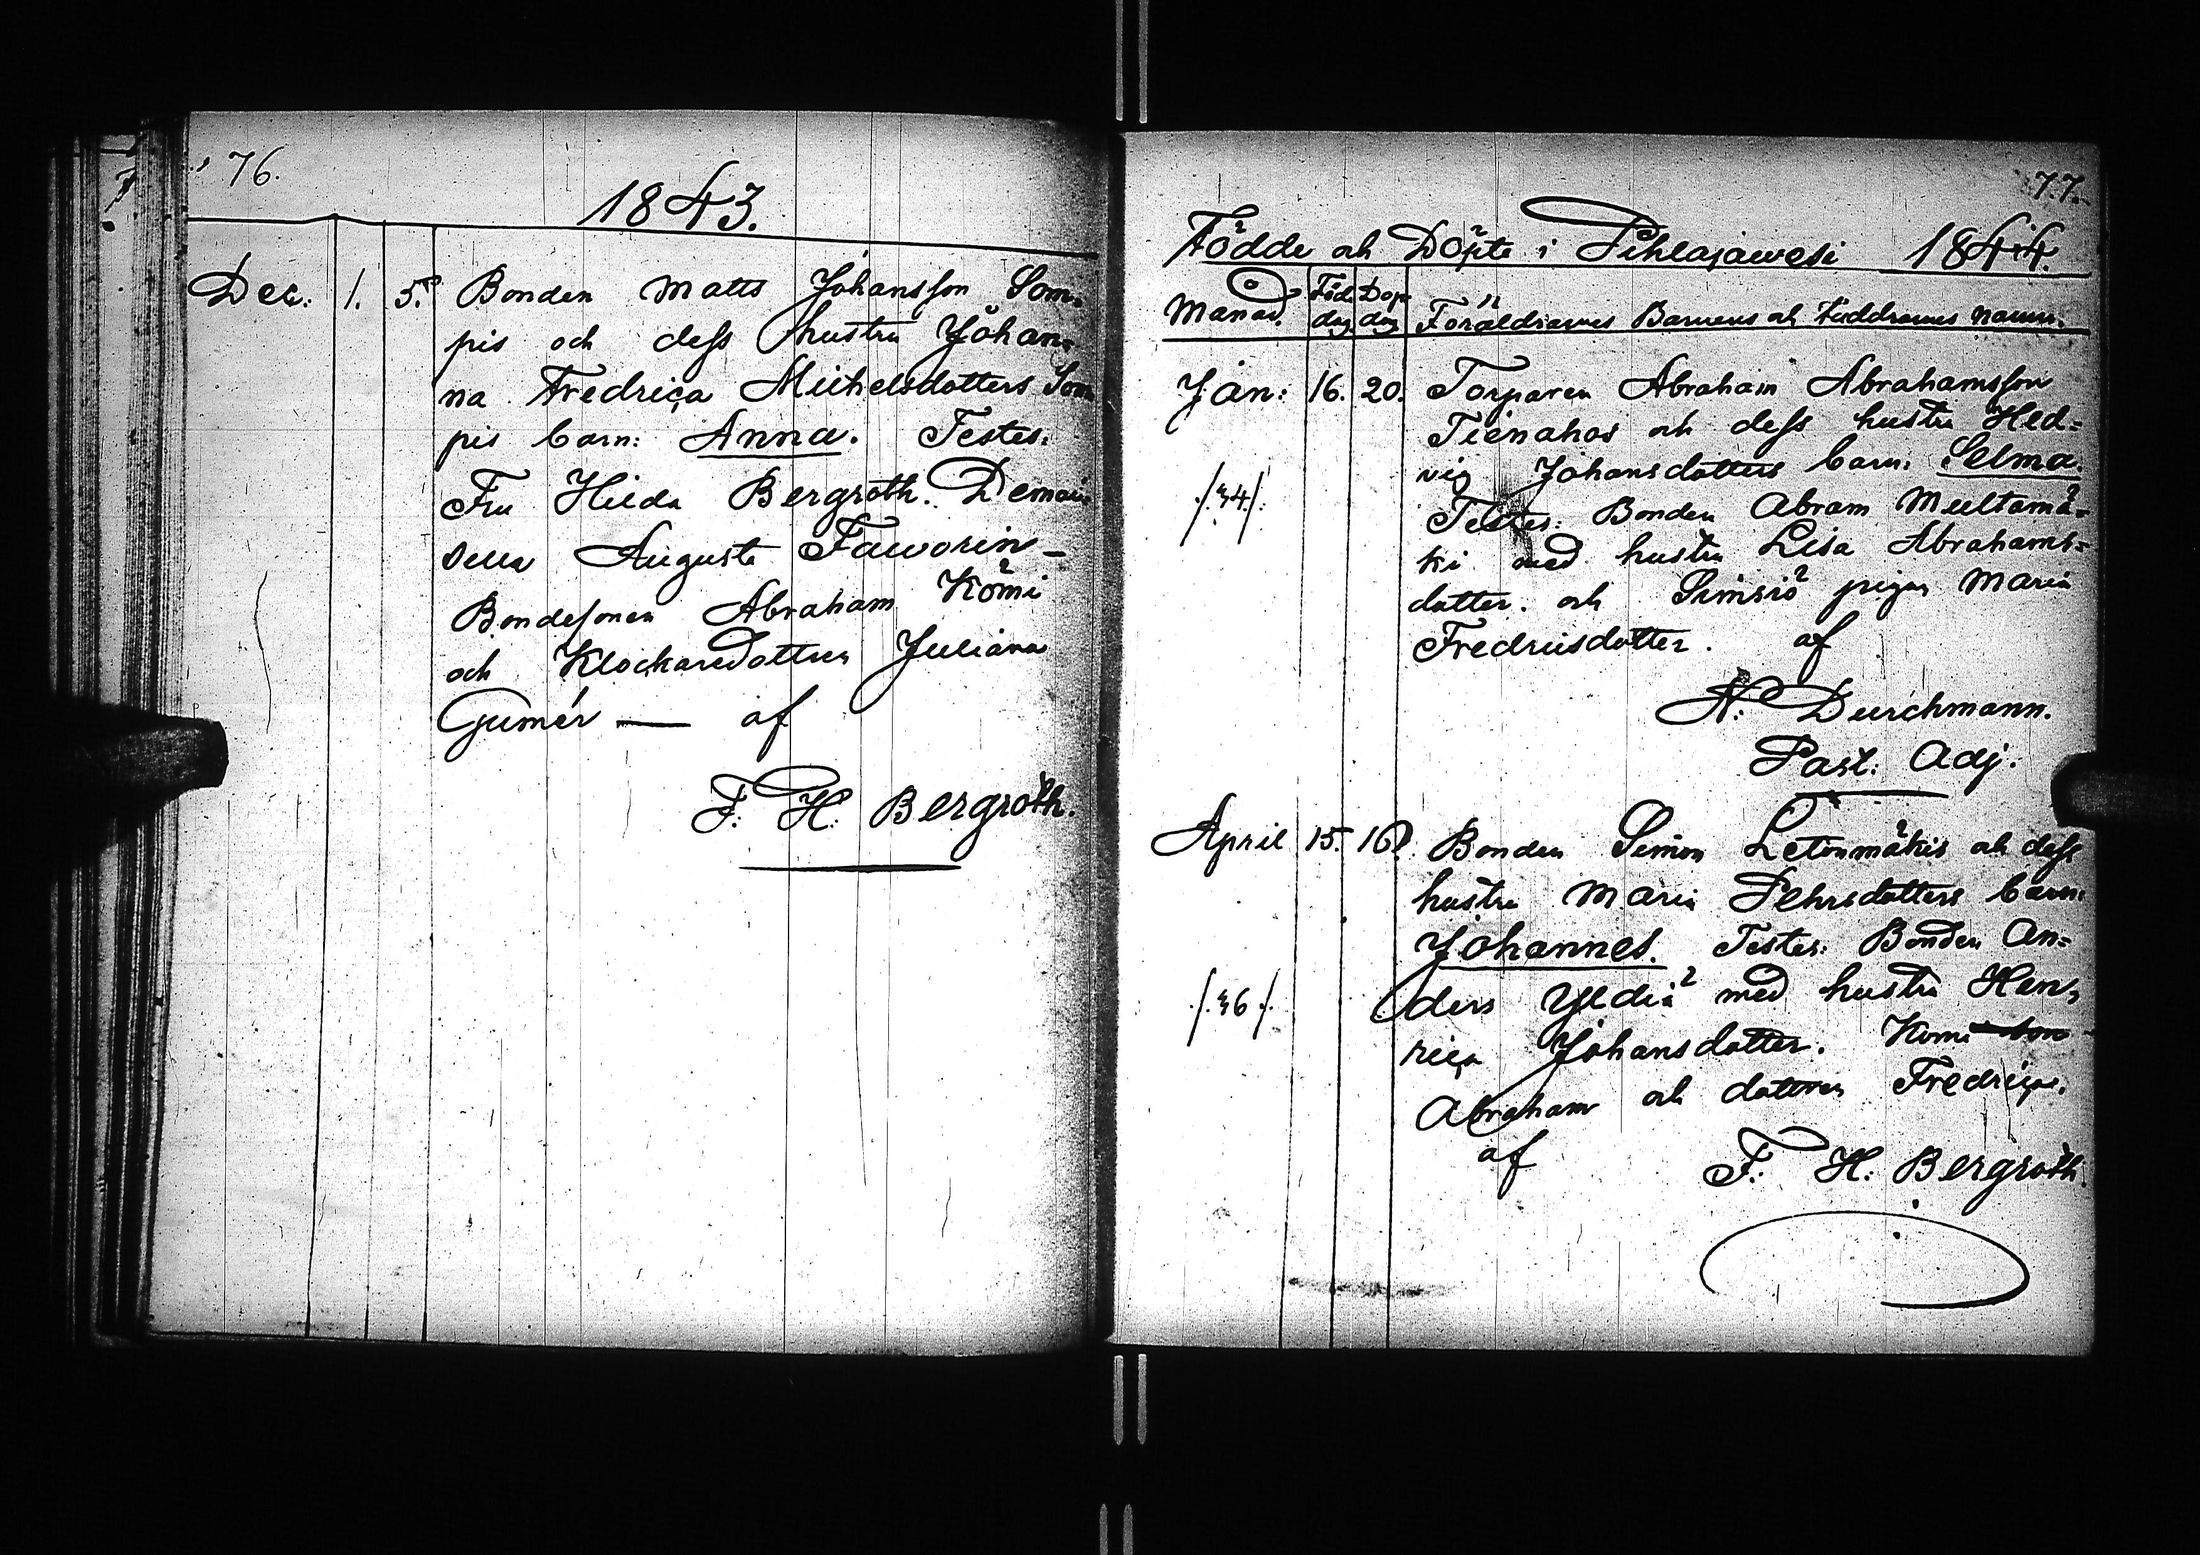 76.
1843.
Dec: 1. 5. Bonden Matts Johansson Som=
pis och dess hustru Johan=
na Fredrica Michelsdotters Som
pis barn: Anna. Testes:
Fru Hilda Bergroth. Demoi
sella Augusta Faworin –
Bondesonen Abraham Kömi
och Klockaredottren Juliana
Gumér — af
F. H. Bergroth.
77.
Födde och Döpte i Pihlajawesi 1844.
Månad. Föd. dag Döp. dag Föräldrarnes Barnens och Faddrarnes namn.
Jan: 16. 20. Torparen Abraham Abrahamsson
Tienahos och dess hustru Hed=
vig Johansdotters barn: Selma.
./.34./. Testes: Bonden Abram Multamä=
ki med hustru Lisa Abrahams=
dotter. och Simsiö pigan Maria
Fredricsdotter. af
N: Durchmann.
Past: Adj.
April 15. 16. Bonden Simon Letonmäkis och dess
hustru Maria Pehrsdotters barn:
Johannes. Testes: Bonden An=
./.36./. ders Yldiä med hustru Hen=
rica Johansdotter. Kömi
Abraham och dottren Fredrica.
af F. H. Bergroth.